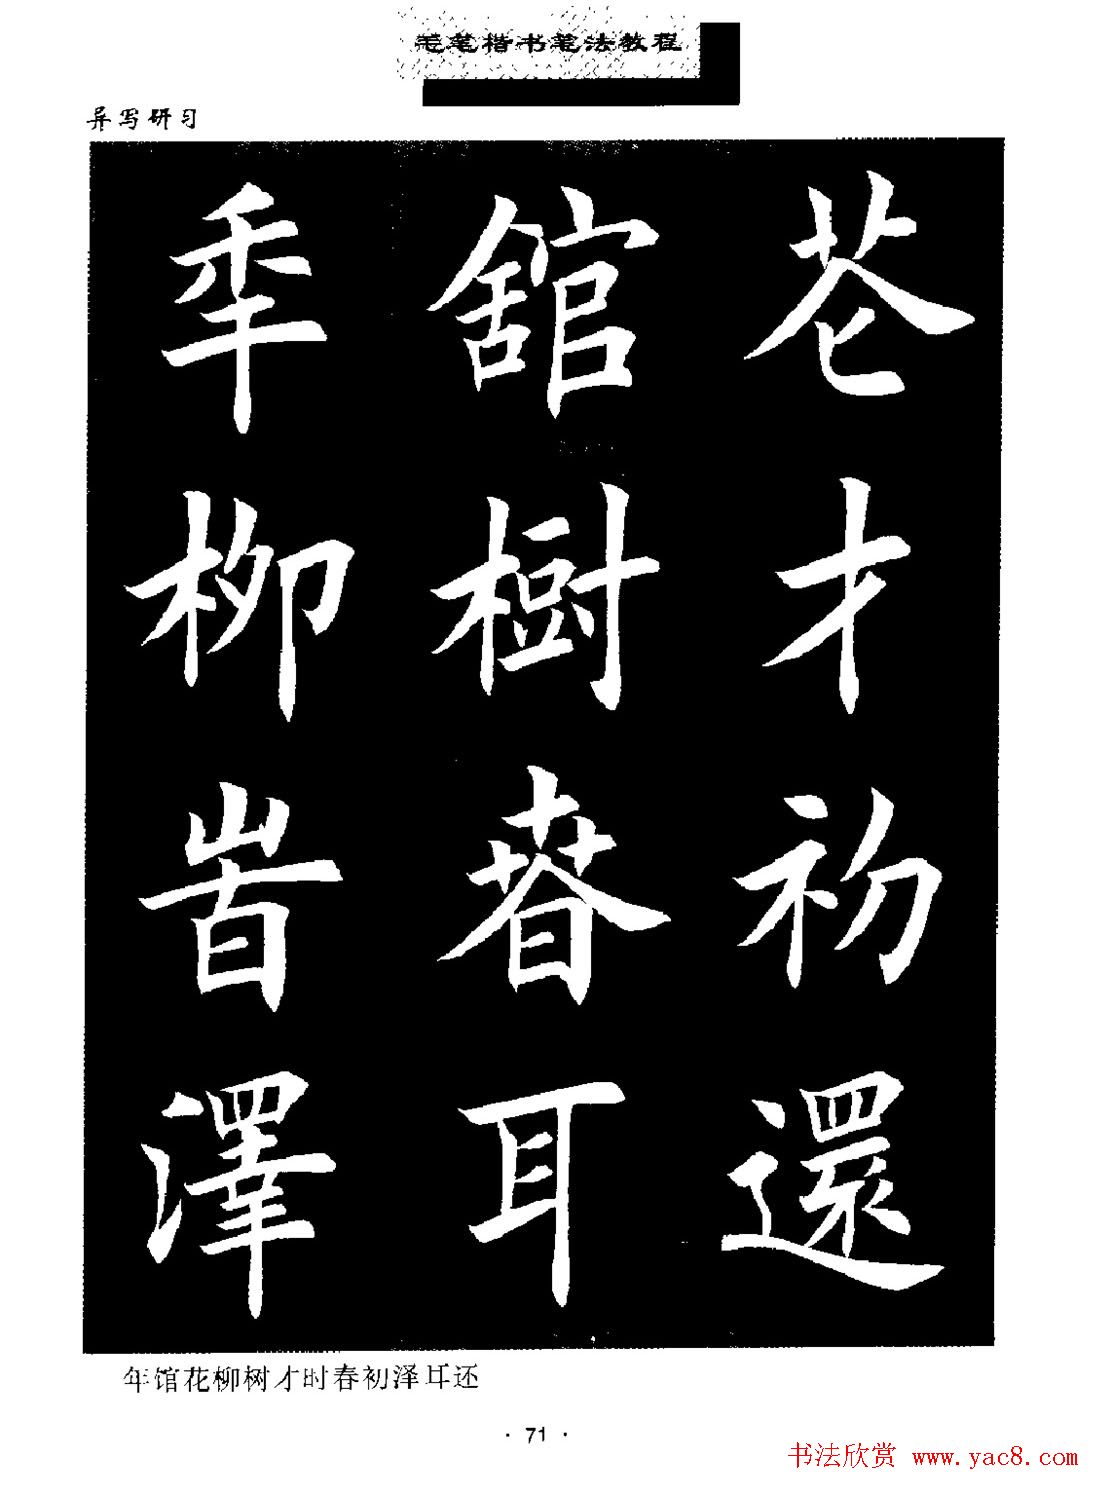 毛笔楷书笔法教程
异写研习
秊舘苍
柳樹才
旹萅初
澤耳還
年馆花柳树才时春初泽耳还
· 71 ·
书法欣赏 www.yac8.com